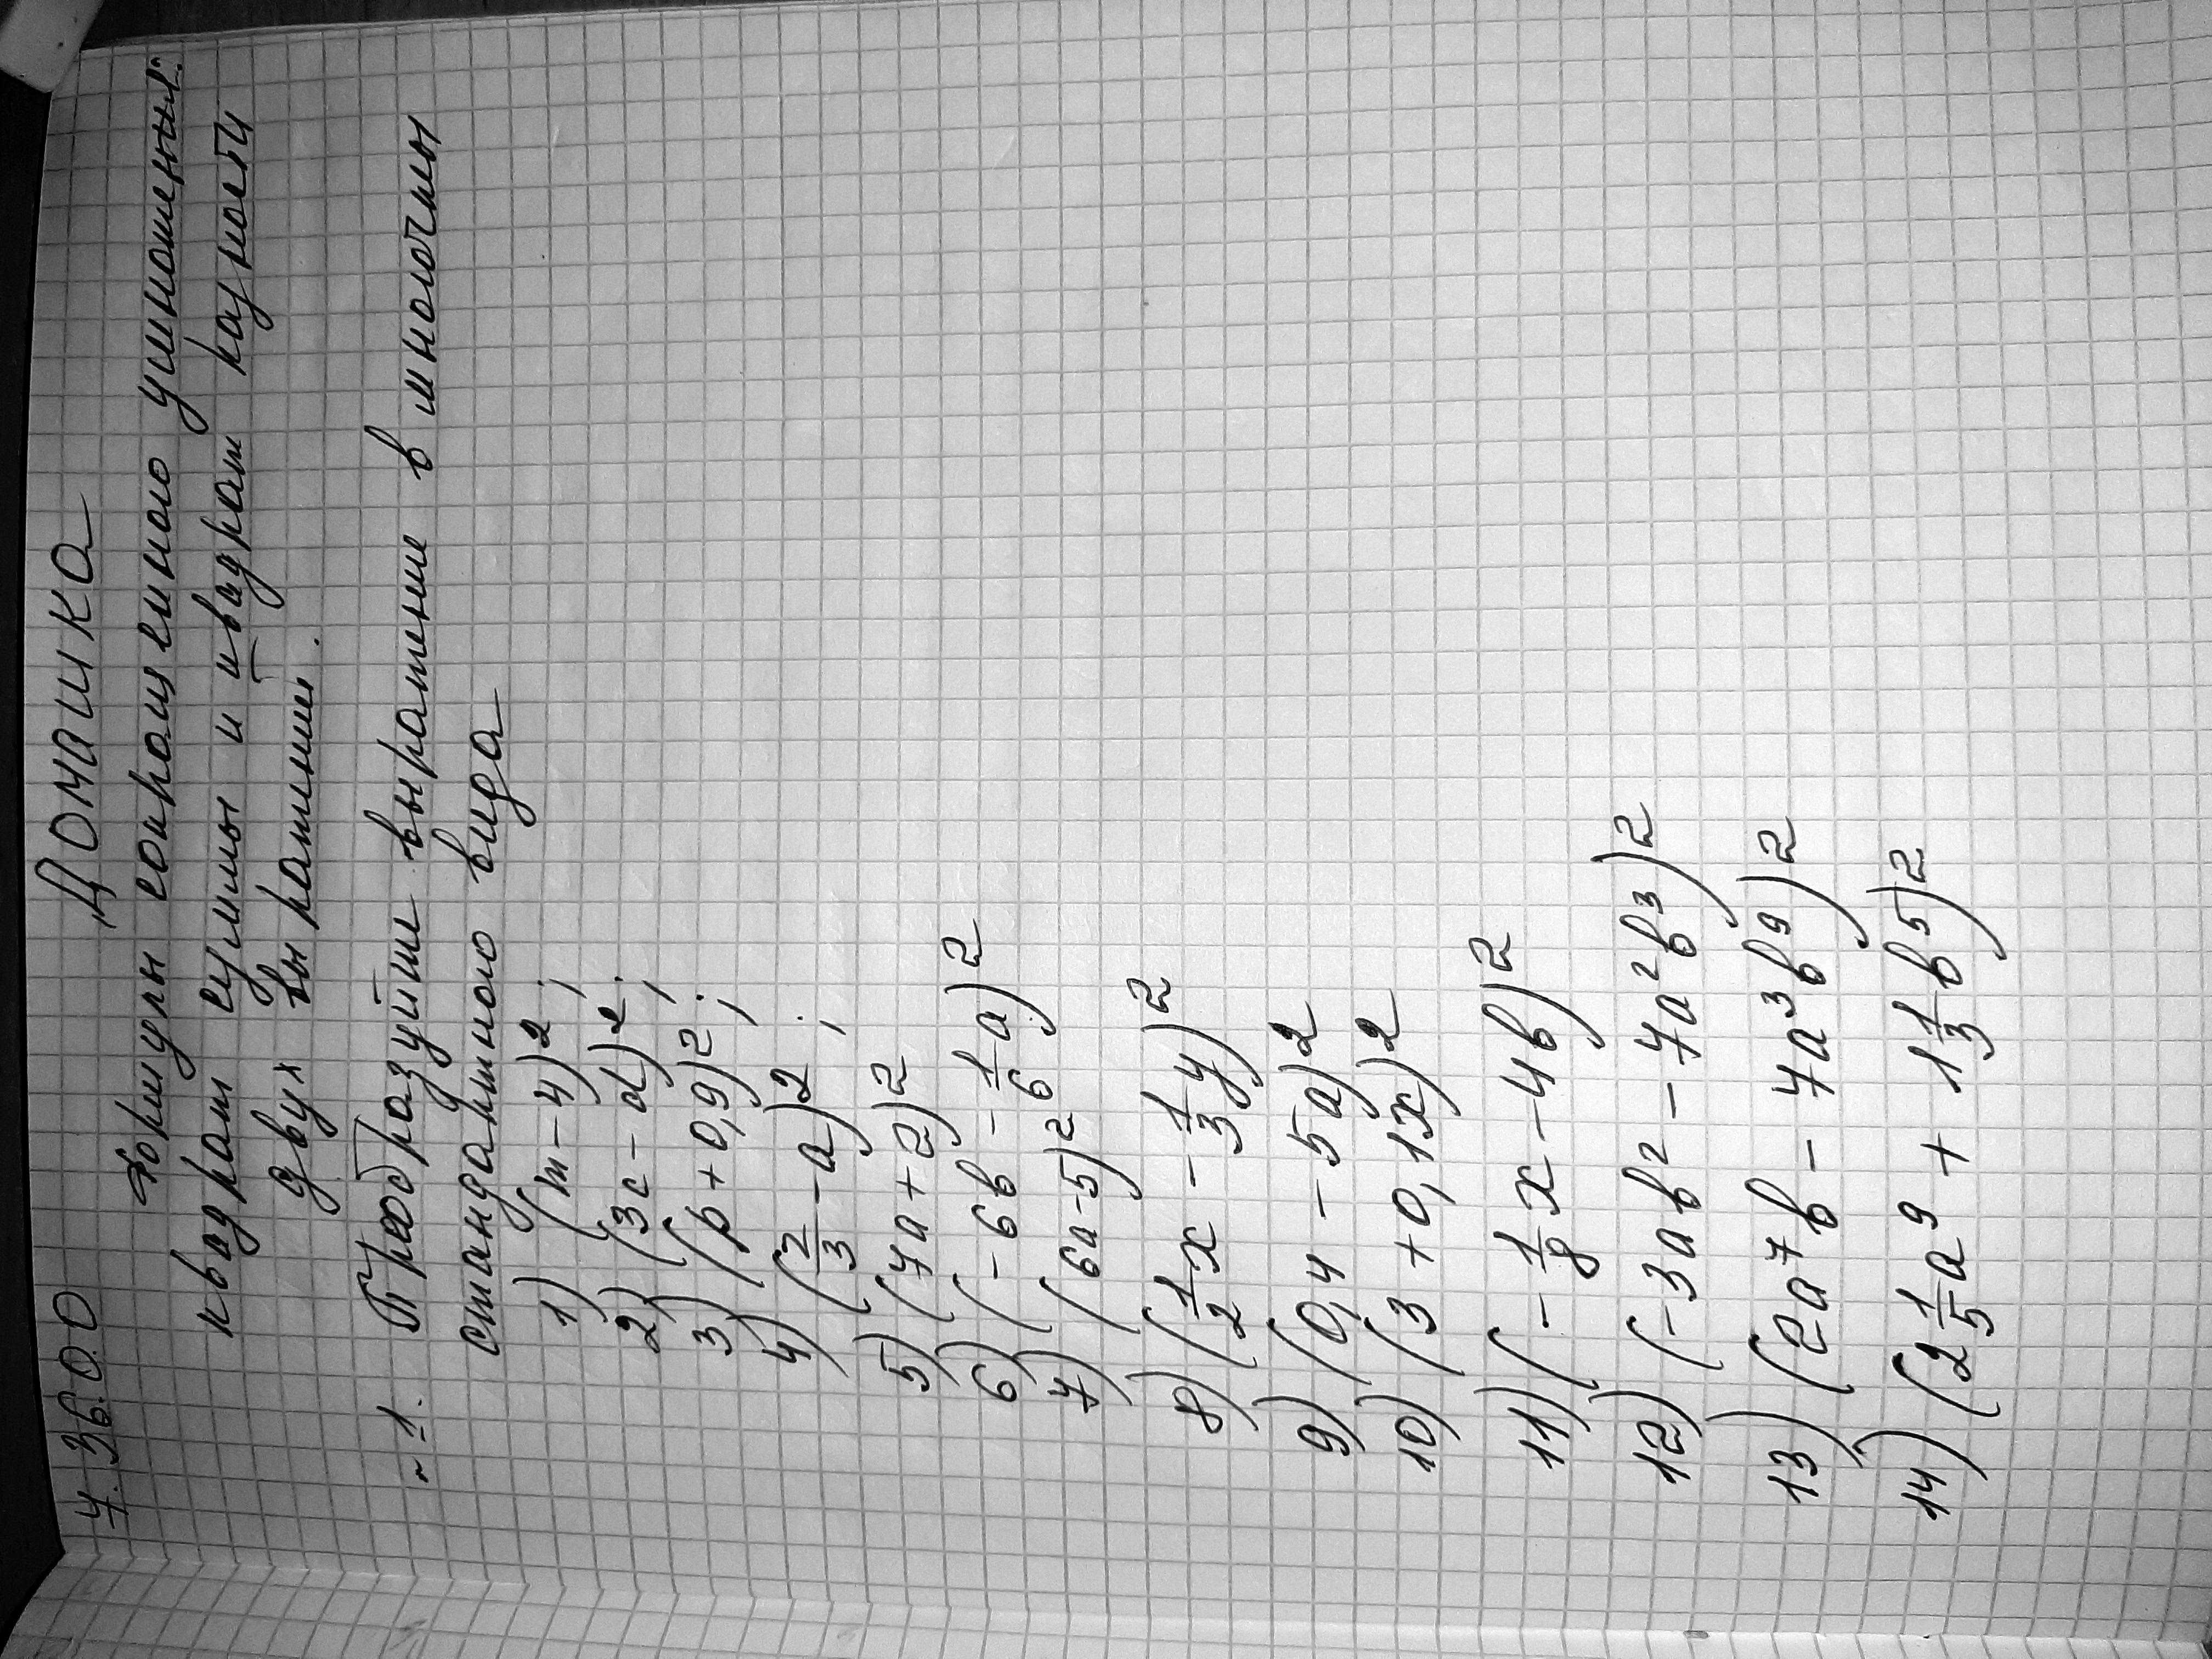 Ч. 36.0.0 Домашка
Формулы сокращенного умножения:
квадрат суммы и квадрат разности
двух выражении.
~ 1. Преобразуйте выражение в многочлы
стандартного вида
1) (m - 4)²;
2) (3c - d)²;
3) (p + 0,9)²;
4) (2/3 - a)²;
5) (7a + 2)²
6) (- 6b - 1/6 a)²
7) (6a - 5)²
8) (1/2 x - 1/3 y)²
9) (0,4 - 5a)²
10) (3 + 0,1x)²
11) (- 1/8 x - 4b)²
12) (-3ab² - 7a²b³)²
13) (2a⁷b - 7a³b⁹)²
14) (2 1/5 a⁹ + 1 1/3 b⁵)²